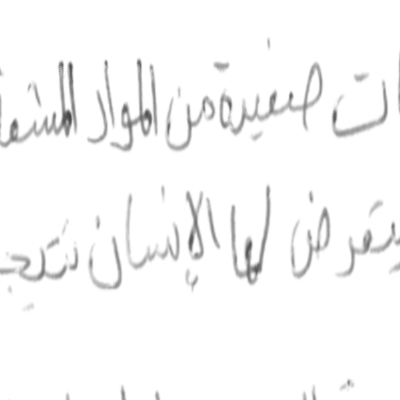 ات صغيرة من المواد المشعا
يتعرض لها الإنسان نتيجـ